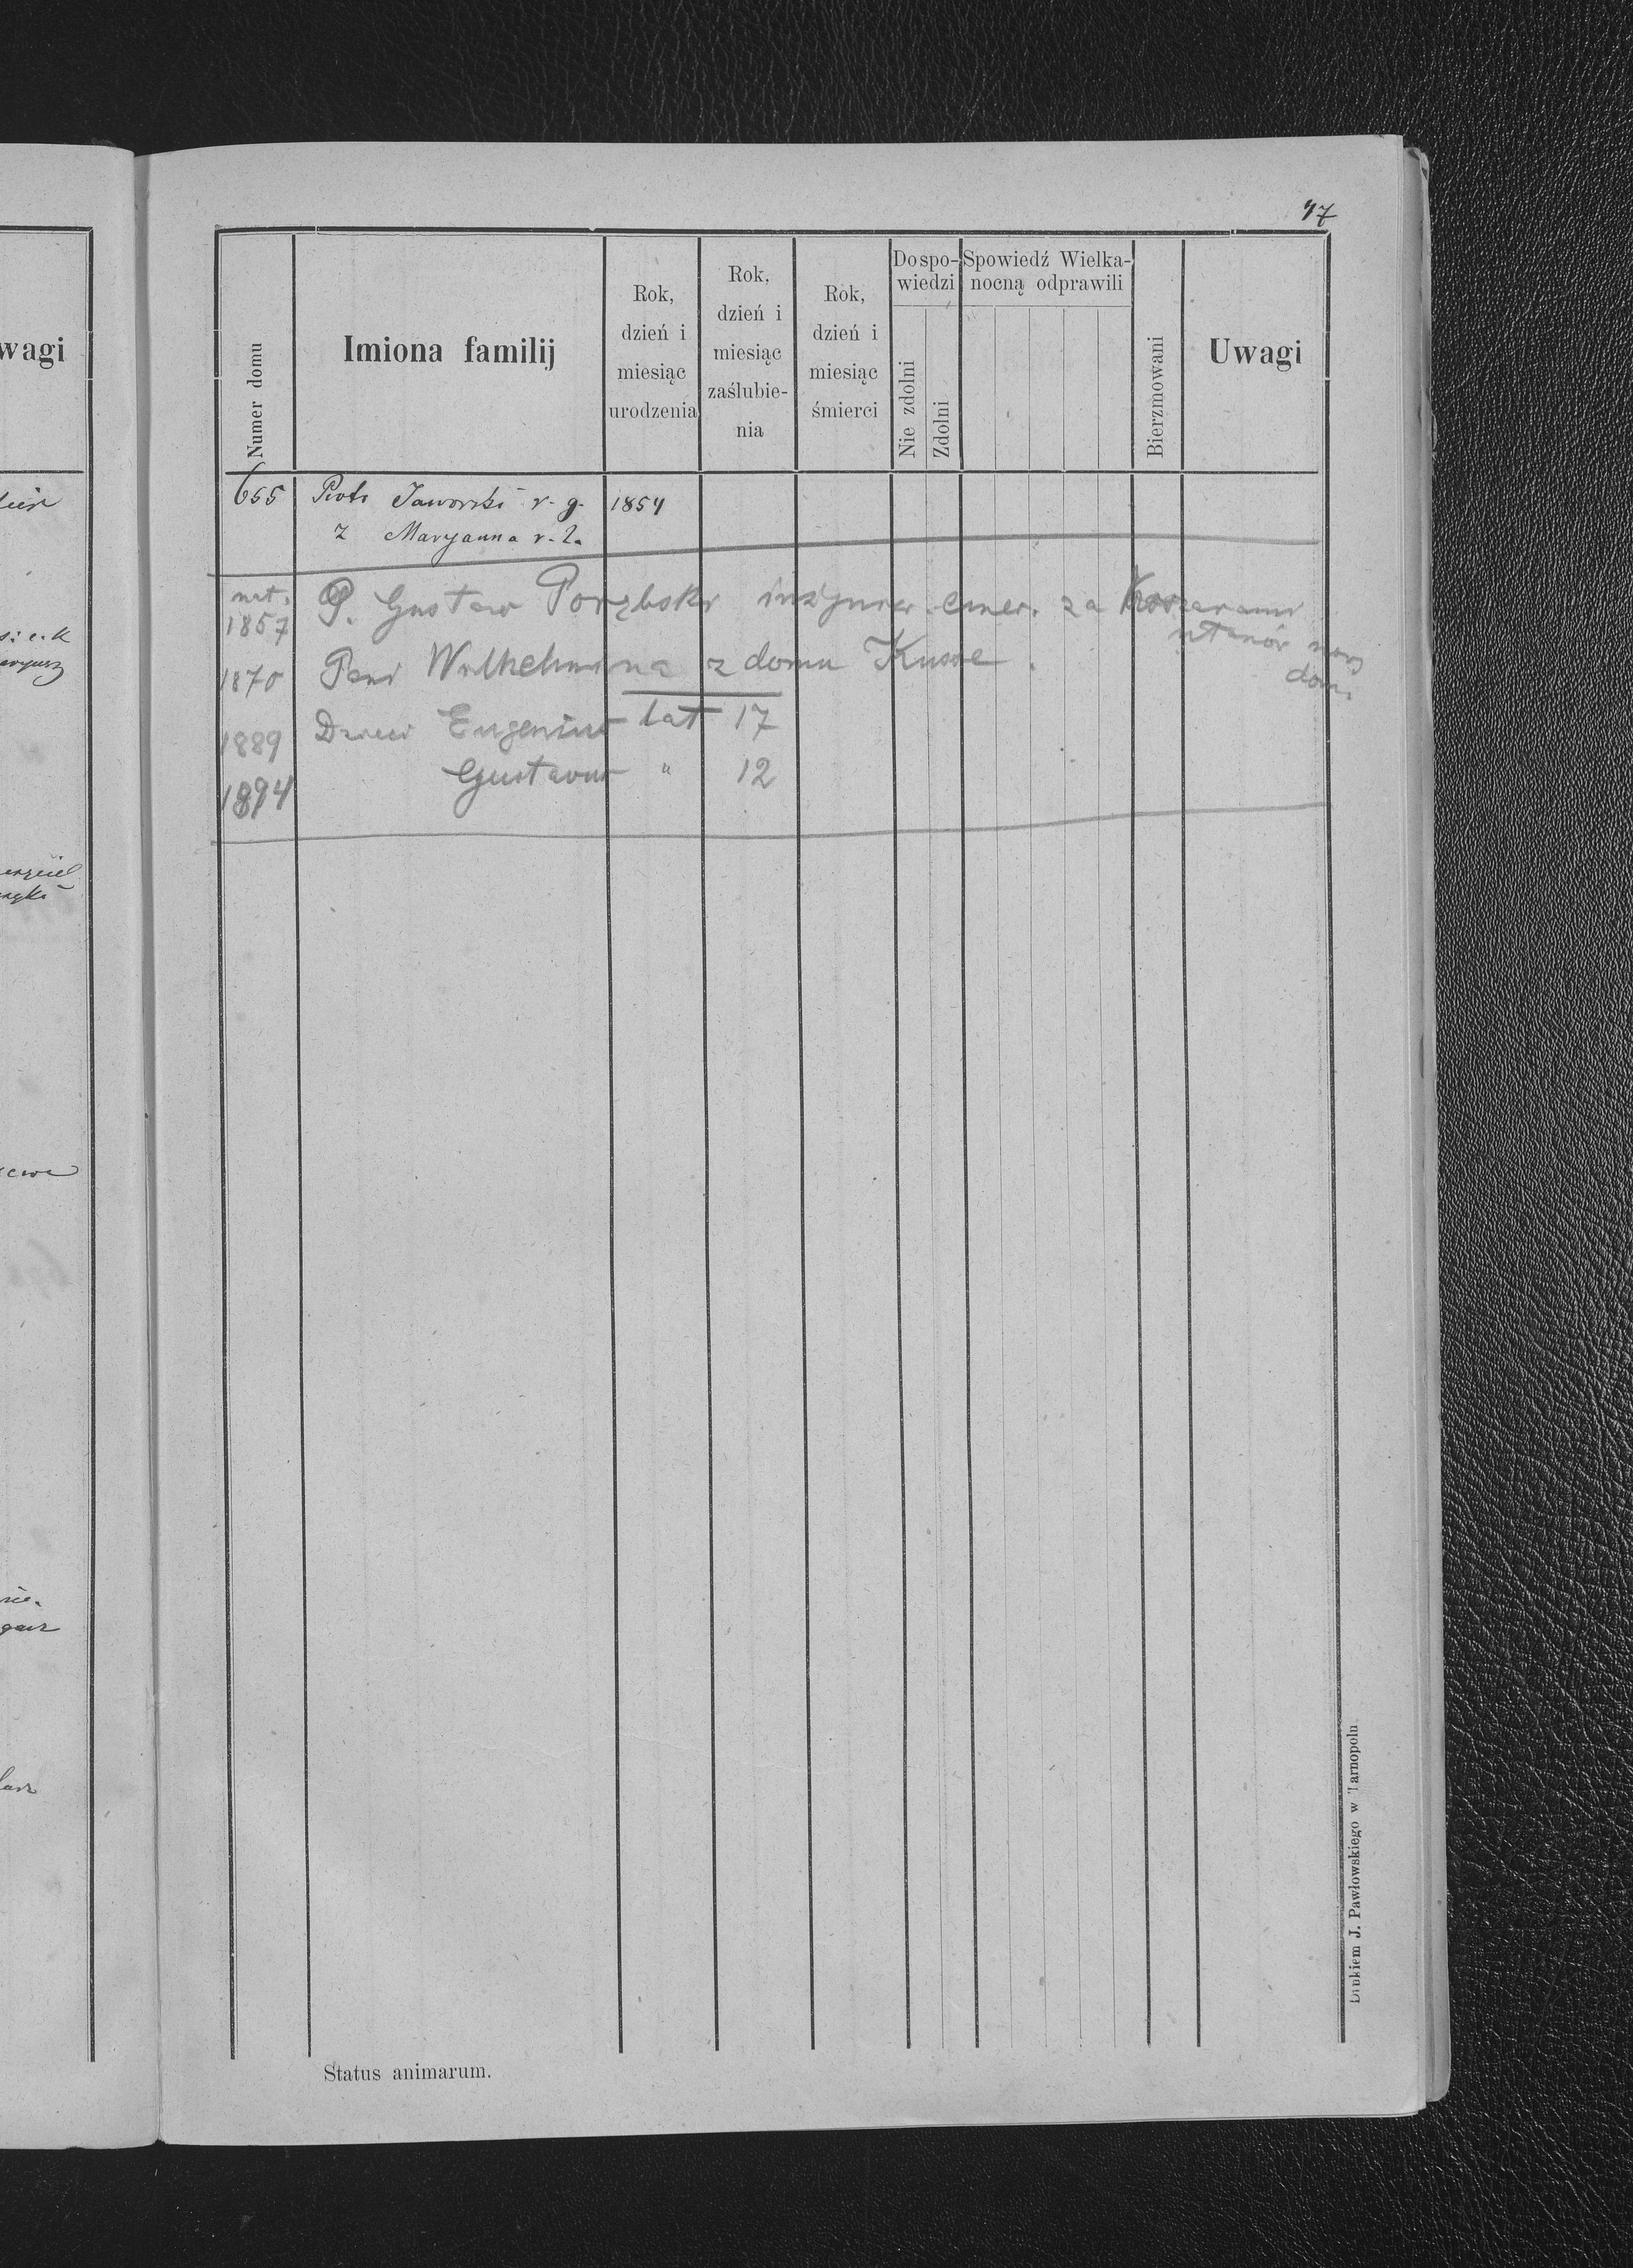 47
Numer domu
Imiona familij
Rok, dzień i miesiąc urodzenia
Rok, dzień i miesiąc zaślubie-nia
Rok, dzień i miesiąc śmierci
Do spo-wiedzi
Nie zdolni
Zdolni
Spowiedź Wielka-nocną odprawili
Bierzmowani
Uwagi
wagi
655 Piotr Jaworski r. g. 1854
z Maryanna r. l.
nat. 1857 P. Gustaw Porębski inżynier emer. za Koszarami
ułanów nowy
dom.
1870 Pani Wilhelmina z domu
1889 Dzieci Eugeniusz lat 17
1894 Gustavus " 12
Status animarum.
Drukiem J. Pawłowskiego w Tarnopolu